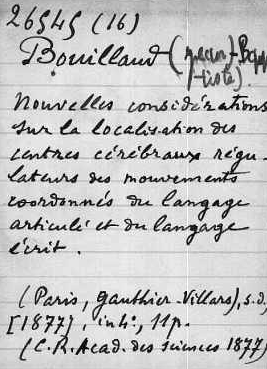 26545 (16)
Bouillaud (Jean-Bap-
tiste).
Nouvelles considérations
sur la localisation des
centres cérébraux régu-
lateurs des mouvements
coordonnés du langage
articulé et du langage
écrit.
(Paris, Gauthier-Villars), s.d,
[1877], in 4°, 11 p.
(C. R. Acad. des Sciences 1877)